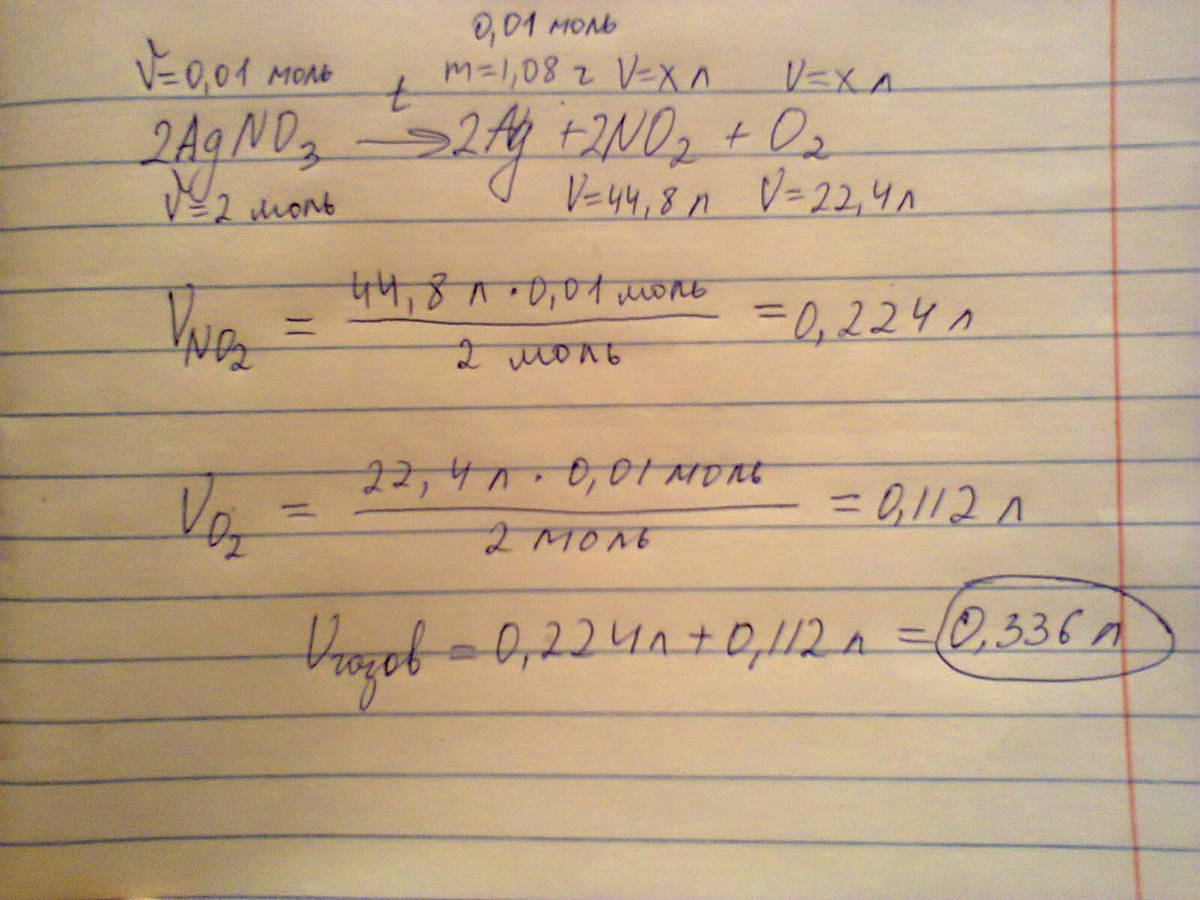 0,01 моль
ν=0,01 моль m=1,08 г V=x л V=x л
2AgNO₃ —t→ 2Ag + 2NO₂ + O₂
ν=2 моль V=44,8 л V=22,4 л
44,8 л · 0,01 моль
V_NO₂ = ———— = 0,224 л
2 моль
22,4 л · 0,01 моль
V_O₂ = ———— = 0,112 л
2 моль
V газов = 0,224 л + 0,112 л = 0,336 л